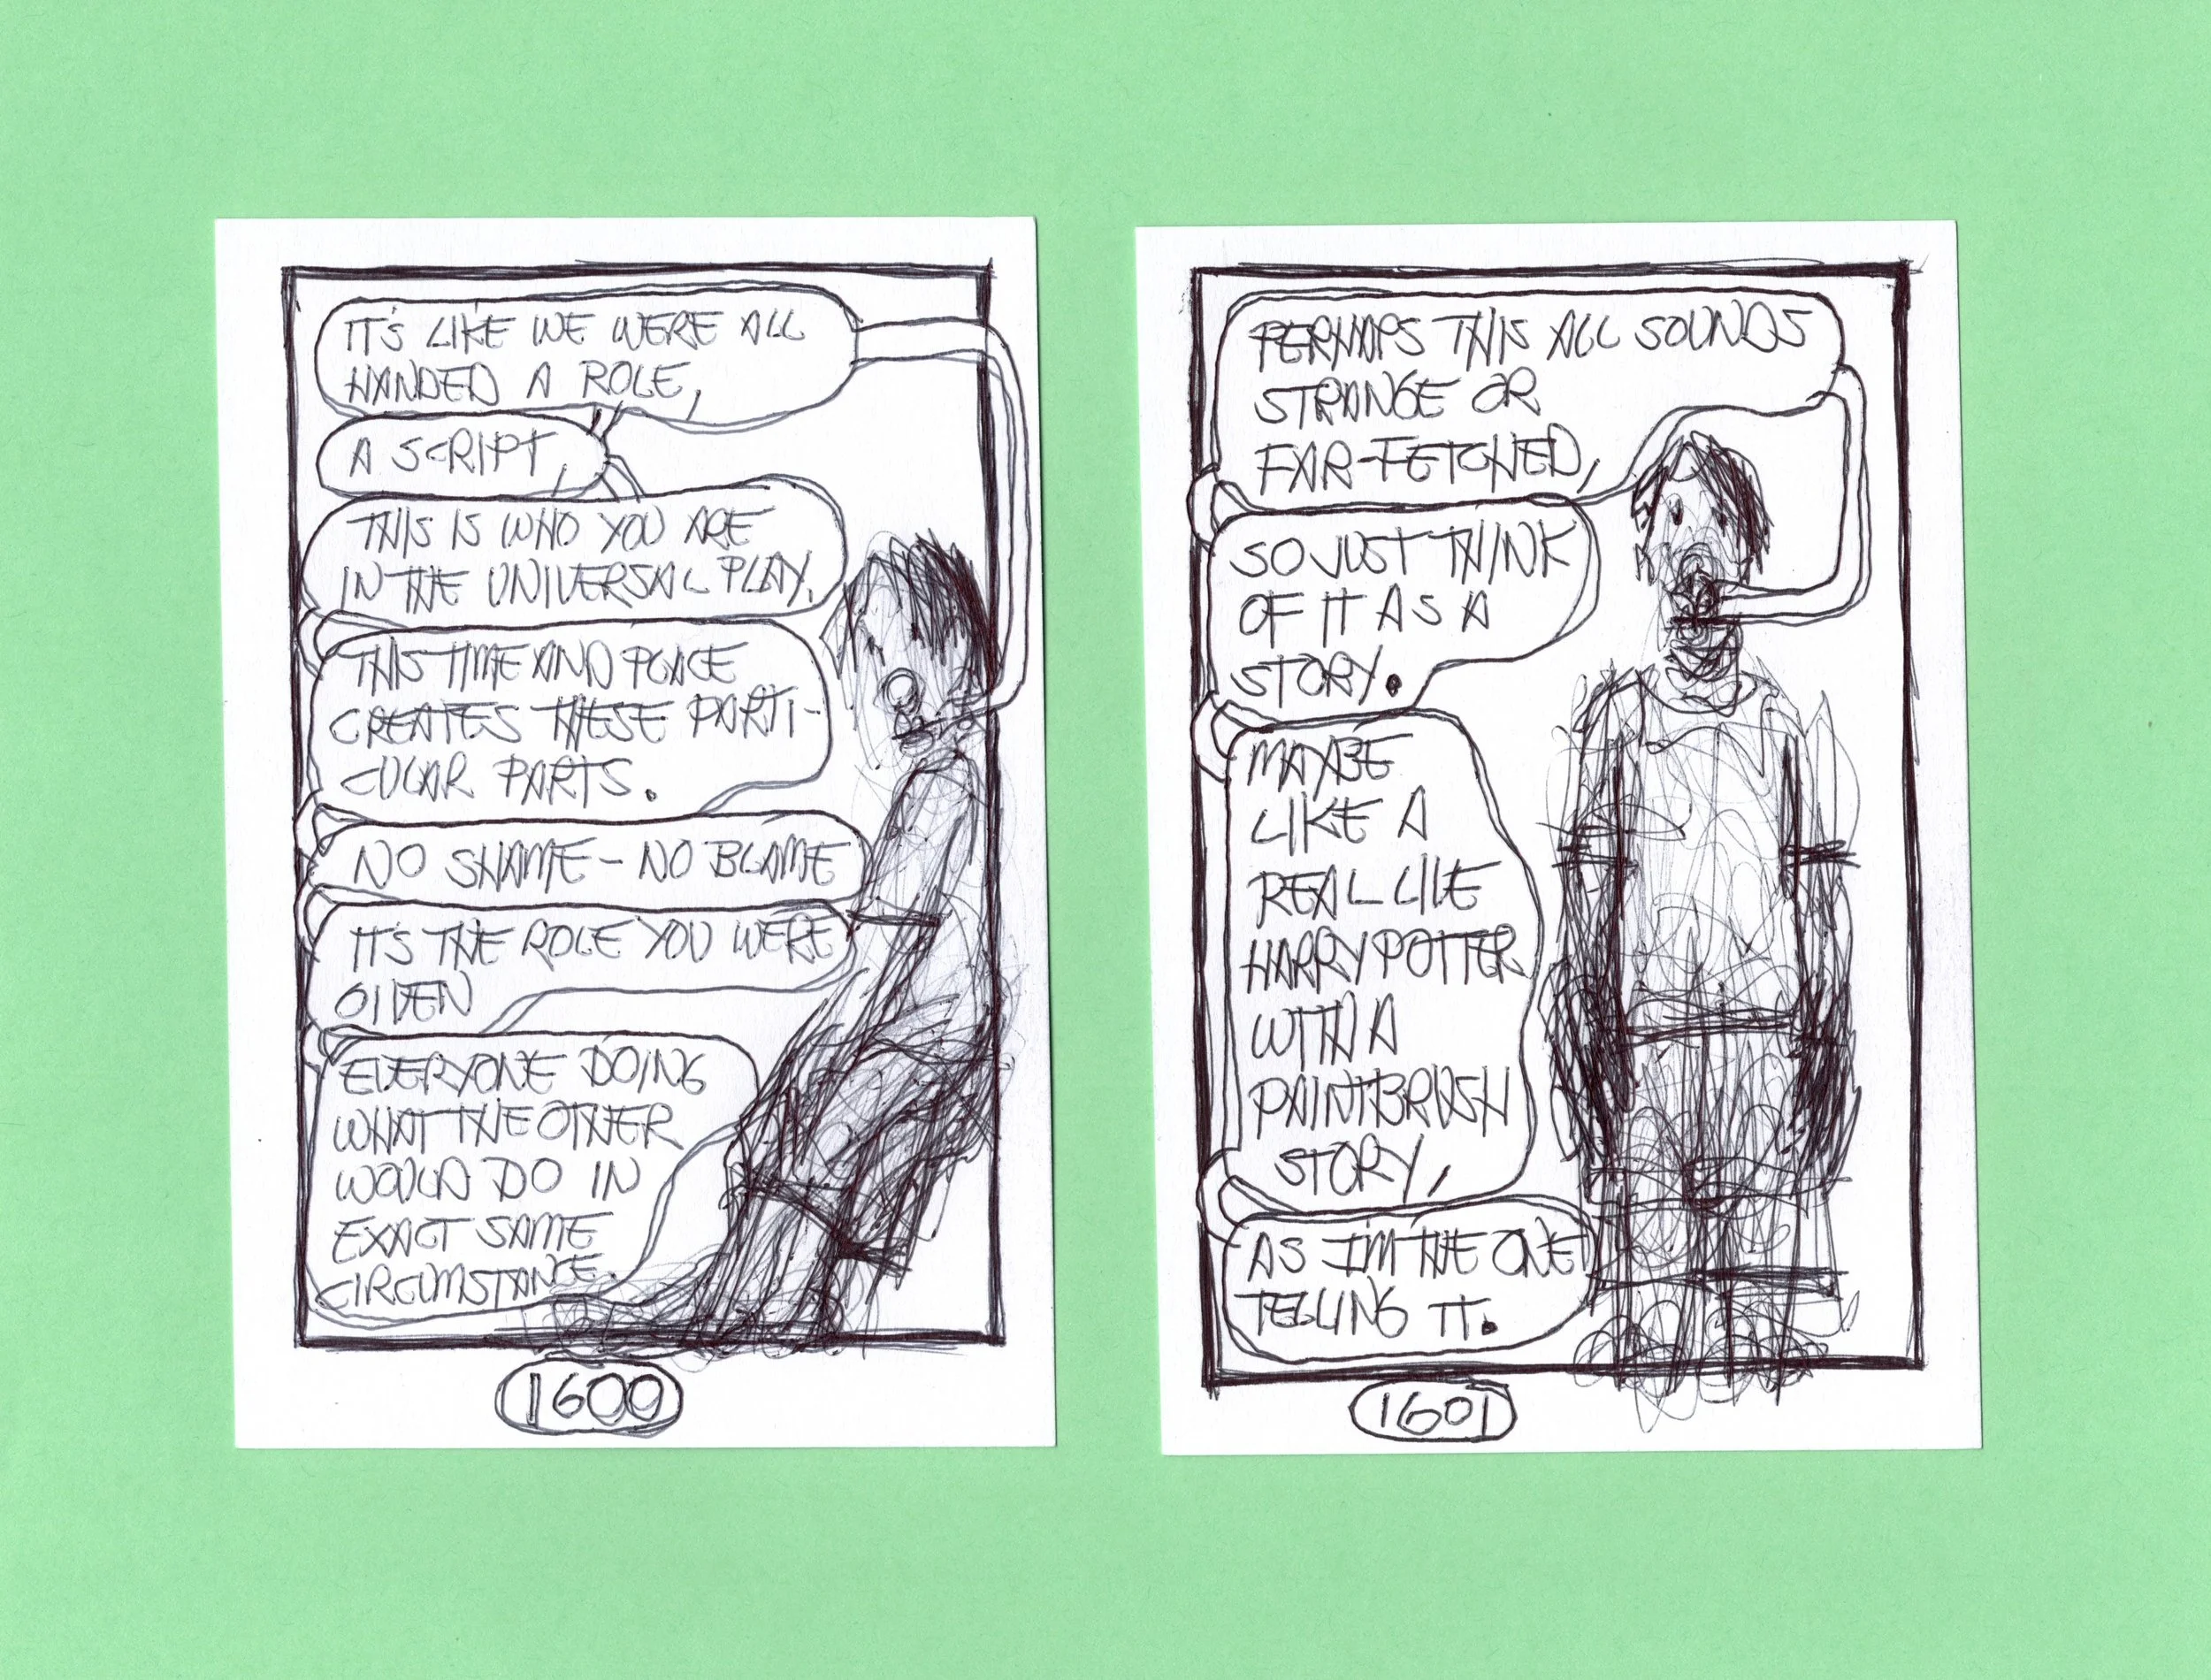 IT'S LIKE WE WERE ALL
HANDED A ROLE,
A SCRIPT,
THIS IS WHO YOU ARE
IN THE UNIVERSAL PLAY.
THIS TIME AND PLACE
CREATES THESE PARTI-
CULAR PARTS.
NO SHAME - NO BLAME
IT'S THE ROLE YOU WERE
GIVEN
EVERYONE DOING
WHAT THE OTHER
WOULD DO IN
EXACT SAME
CIRCUMSTANCE.
1600
PERHAPS THIS ALL SOUNDS
STRANGE OR
FAR-FETCHED,
SO JUST THINK
OF IT AS A
STORY.
MAYBE
LIKE A
REAL LIVE
HARRY POTTER
WITH A
PAINTBRUSH
STORY,
AS I'M THE ONE
TELLING IT.
1601